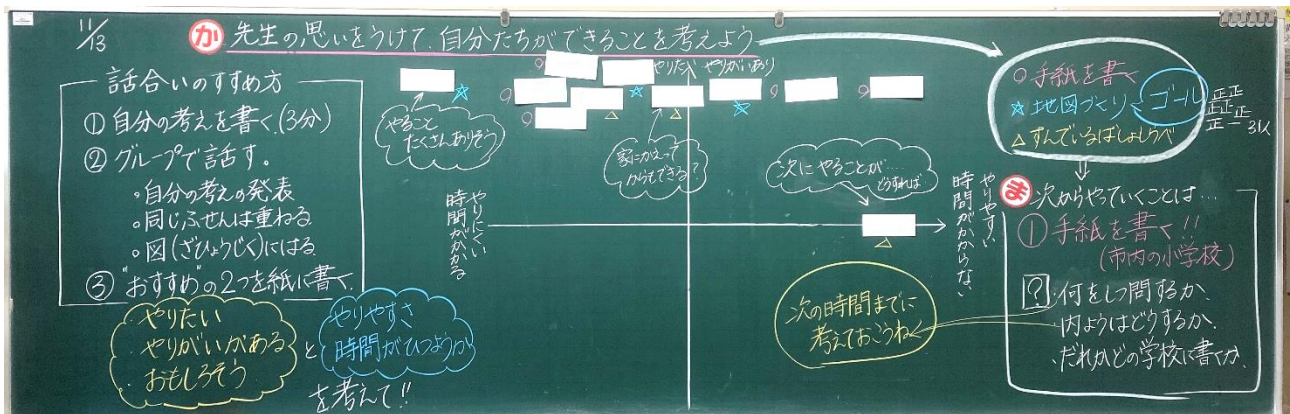 11/13
か 先生の思いをうけて、自分たちができることを考えよう
話合いのすすめ方
① 自分の考えを書く。(3分)
② グループで話す。
・自分の考えの発表
・同じふせんは重ねる
・図(ざひょうじく)にはる
③ "おすすめ"の2つを紙に書く。
やりたい
やりがいがある
おもしろそう
と
やりやすさ
時間がひつようか
を考えて!!
やりたい やりがいあり
やること
たくさんありそう
家にかえって
からもできる?
次にやることが…
どうすれば
やりにくい
時間がかかる
やりやすい
時間がかからない
次の時間までに
考えておこうね
手紙を書く
☆地図づくり
ゴール
△すんでいるばしょしらべ
正正
正正
正一 31人
ま 次からやっていくことは…
① 手紙を書く!!
(市内の小学校)
? 何をしつ問するか、
・内ようはどうするか、
・だれがどの学校に書くか、